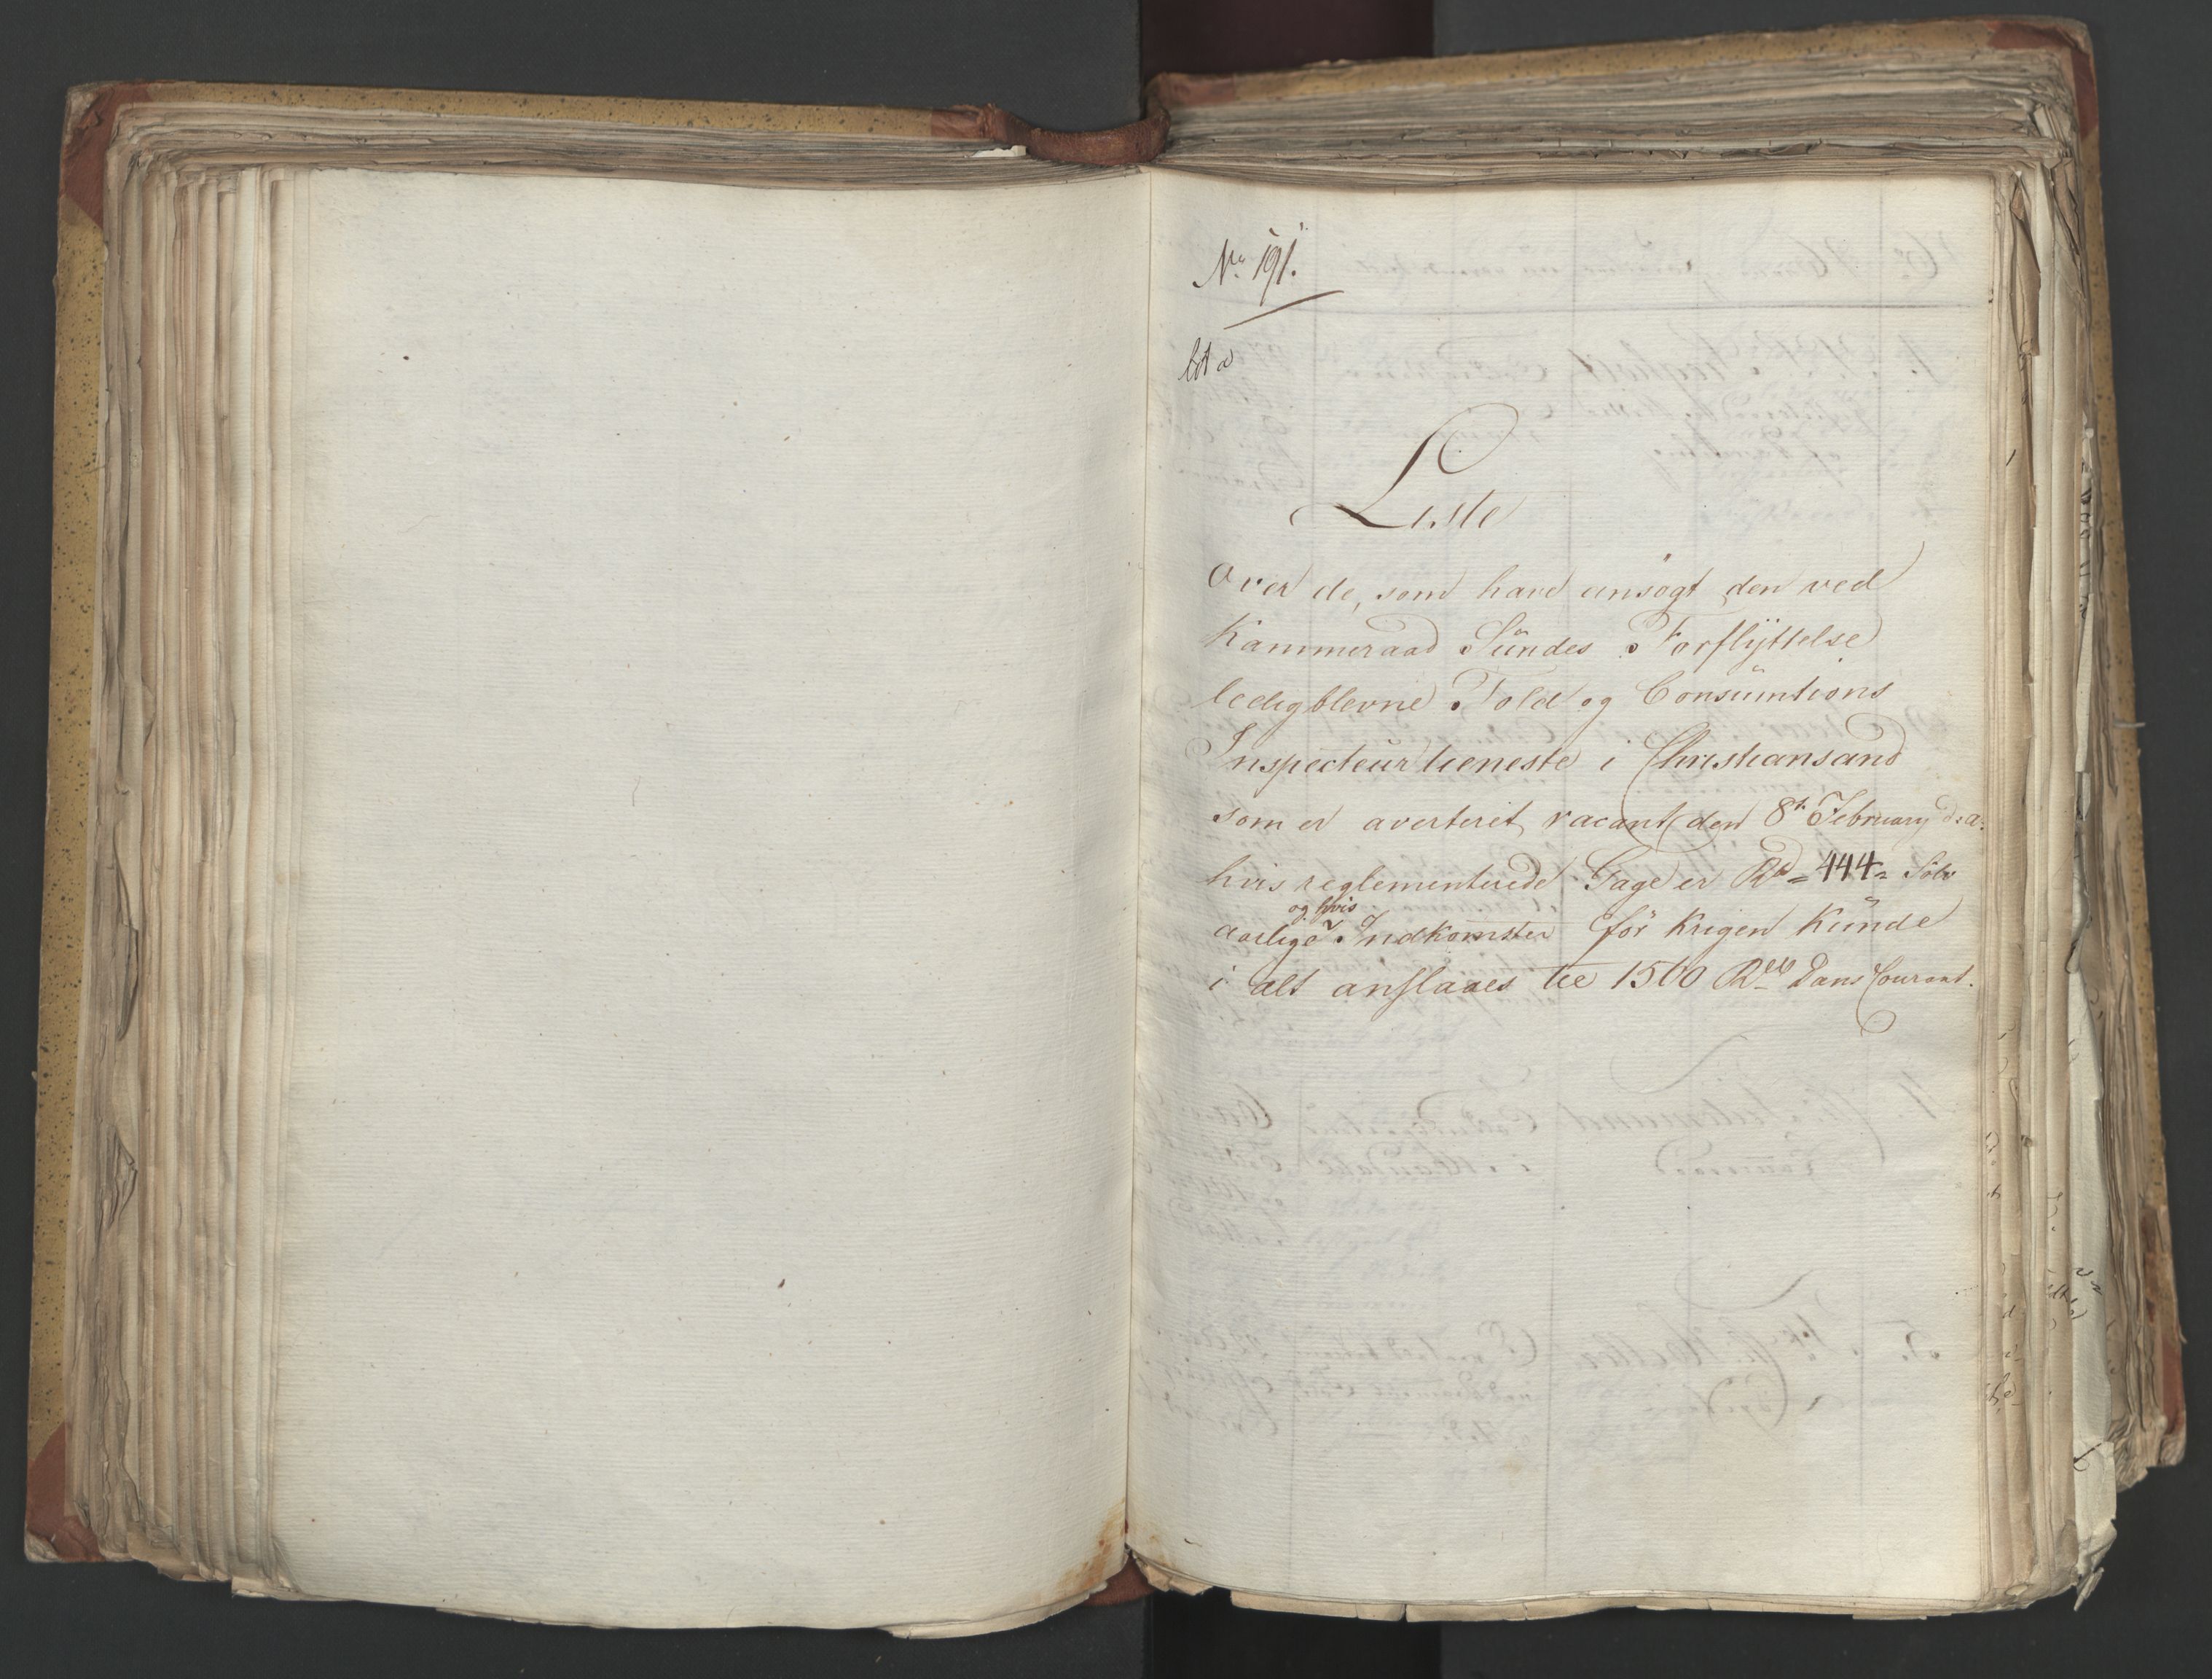 No 191.
Lit a
Liste
Over de, som have ansögt den ved
Kammeraad Sündes Forflÿttelse
ledigblevne Told og Consümtions
Inspecteurtieneste i Christiansand
som er averteret vacant den 8de February d. a.
hvis reglementerede Gage er Rd = 444 = Sölv
og hvis
aarlige Indkomster för Krigen Künde
i alt anslaaes til 1500 Rd Dans Courant.